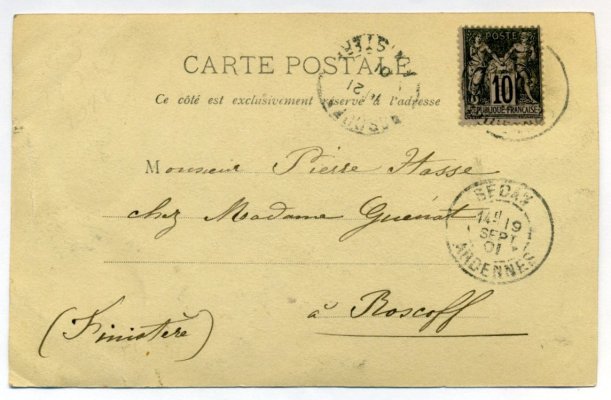 POSTES
10
RÉPUBLIQUE FRANÇAISE
CARTE POSTALE
Ce côté est exclusivement réservé à l'adresse
Monsieur Pierre Hasse
chez Madame Guénot
SEDAN
19
SEPT
01
ARDENNES
à Roscoff
(Finistère)